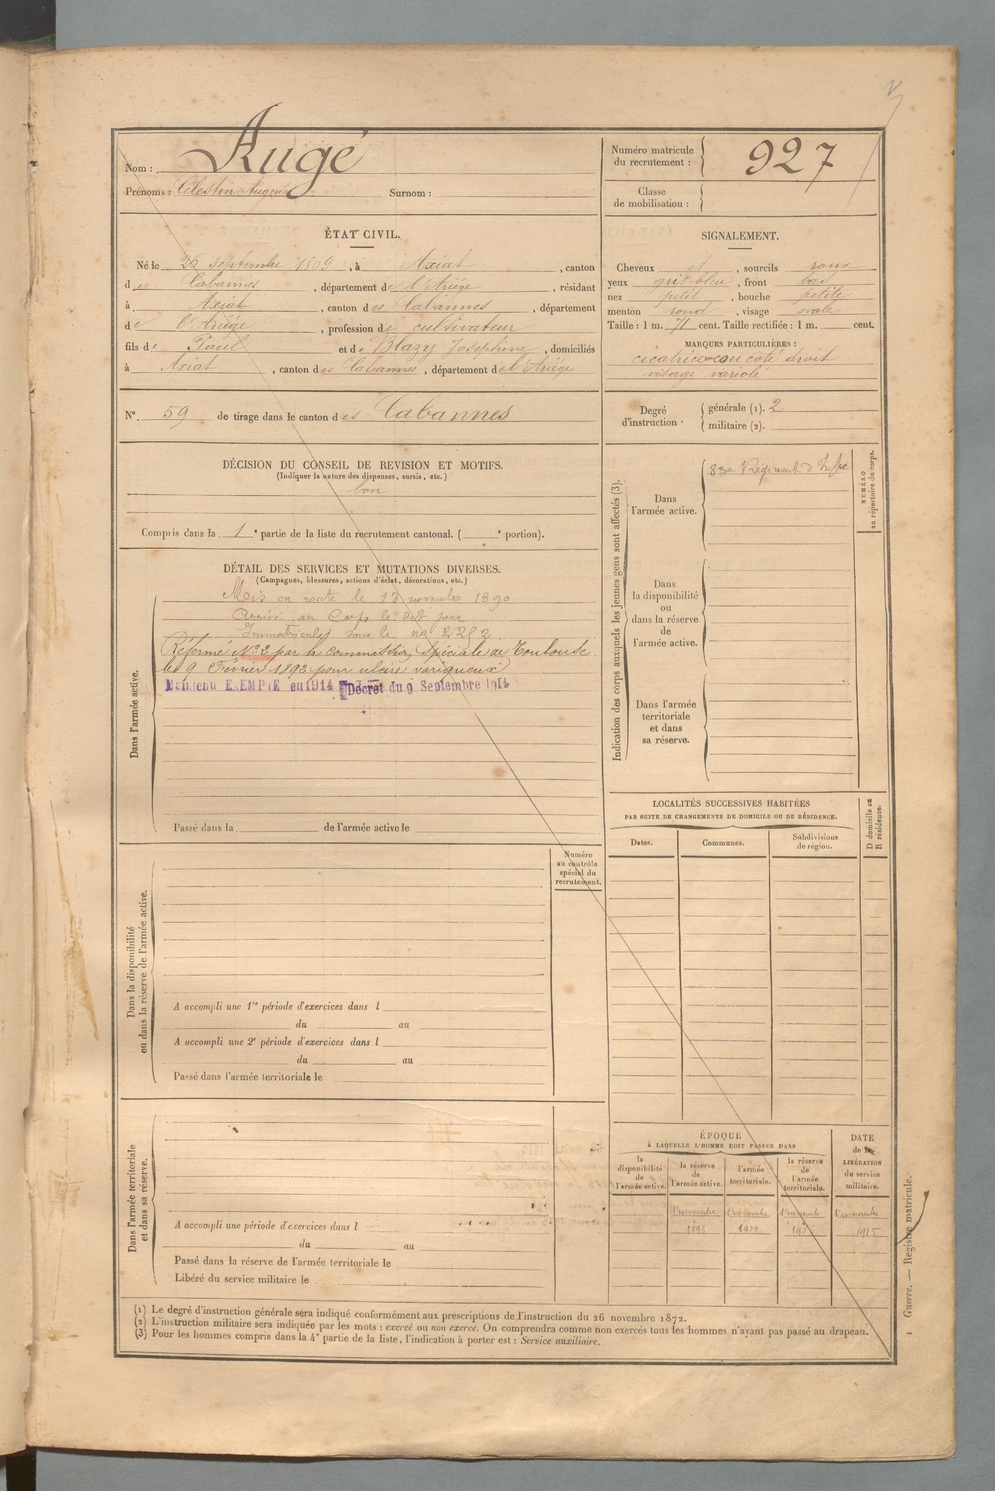 Nom : Augé
Prénoms : Célestin Auguste Surnom :
Numéro matricule du recrutement : 927
Classe de mobilisation :
ÉTAT CIVIL.
Né le 26 septembre 1869, à Axiat, canton
des Cabannes, département de l'Ariège, résidant
à Axiat, canton des Cabannes, département
de l'Ariège, profession de cultivateur
fils de Paul et de Blazy Joséphine, domiciliés
à Axiat, canton des Cabannes, département de l'Ariège
SIGNALEMENT.
Cheveux et, sourcils roux
yeux gris-bleu, front bas
nez petit, bouche petite
menton rond, visage ovale
Taille : 1 m. 71 cent. Taille rectifiée : 1 m. cent.
MARQUES PARTICULIÈRES :
cicatrice au coté droit
visage variolé
N° 59 de tirage dans le canton des Cabannes
Degré d'instruction. générale (1). 2
militaire (2).
DÉCISION DU CONSEIL DE REVISION ET MOTIFS.
(Indiquer la nature des dispenses, sursis, etc.)
bon
Compris dans la 1e partie de la liste du recrutement cantonal. ( e portion).
DÉTAIL DES SERVICES ET MUTATIONS DIVERSES.
(Campagnes, blessures, actions d'éclat, décorations, etc.)
Dans l'armée active.
Mis en route le 13 novembre 1890
Arrivé au Corps le dit jour
Immatriculé sous le no
Réformé No 2 par la commission spéciale de Toulouse
le 9 Février 1892 pour ulcère variqueux
Maintenu EXEMPTE en 1914 Décret du 9 Septembre 1914
Passé dans la de l'armée active le
Indication des corps auxquels les jeunes gens sont affectés (3).
NUMÉRO au répertoire du corps.
Dans l'armée active.
83e Régiment d'Infie
Dans la disponibilité ou dans la réserve de l'armée active.
Dans l'armée territoriale et dans sa réserve.
LOCALITÉS SUCCESSIVES HABITÉES
PAR SUITE DE CHANGEMENTS DE DOMICILE OU DE RÉSIDENCE.
Dates.
Communes.
Subdivisions de région.
D domicile ou R résidence.
Dans la disponibilité ou dans la réserve de l'armée active.
Numéro au contrôle spécial du recrutement.
A accompli une 1re période d'exercices dans l
du au
A accompli une 2e période d'exercices dans l
du au
Passé dans l'armée territoriale le
Dans l'armée territoriale et dans sa réserve.
A accompli une période d'exercices dans l
du au
Passé dans la réserve de l'armée territoriale le
Libéré du service militaire le
ÉPOQUE
À LAQUELLE L'HOMME DOIT PASSER DANS
la disponibilité de l'armée active.
la réserve de l'armée active.
l'armée territoriale.
la réserve de l'armée territoriale.
DATE de la LIBÉRATION du service militaire.
1 novembre 1893
1 novembre 1900
1 novembre
1 novembre 1915
(1) Le degré d'instruction générale sera indiqué conformément aux prescriptions de l'instruction du 26 novembre 1872.
(2) L'instruction militaire sera indiquée par les mots : exercé ou non exercé. On comprendra comme non exercés tous les hommes n'ayant pas passé au drapeau.
(3) Pour les hommes compris dans la 4e partie de la liste, l'indication à porter est : Service auxiliaire.
1 Guerre. — Registre matricule.